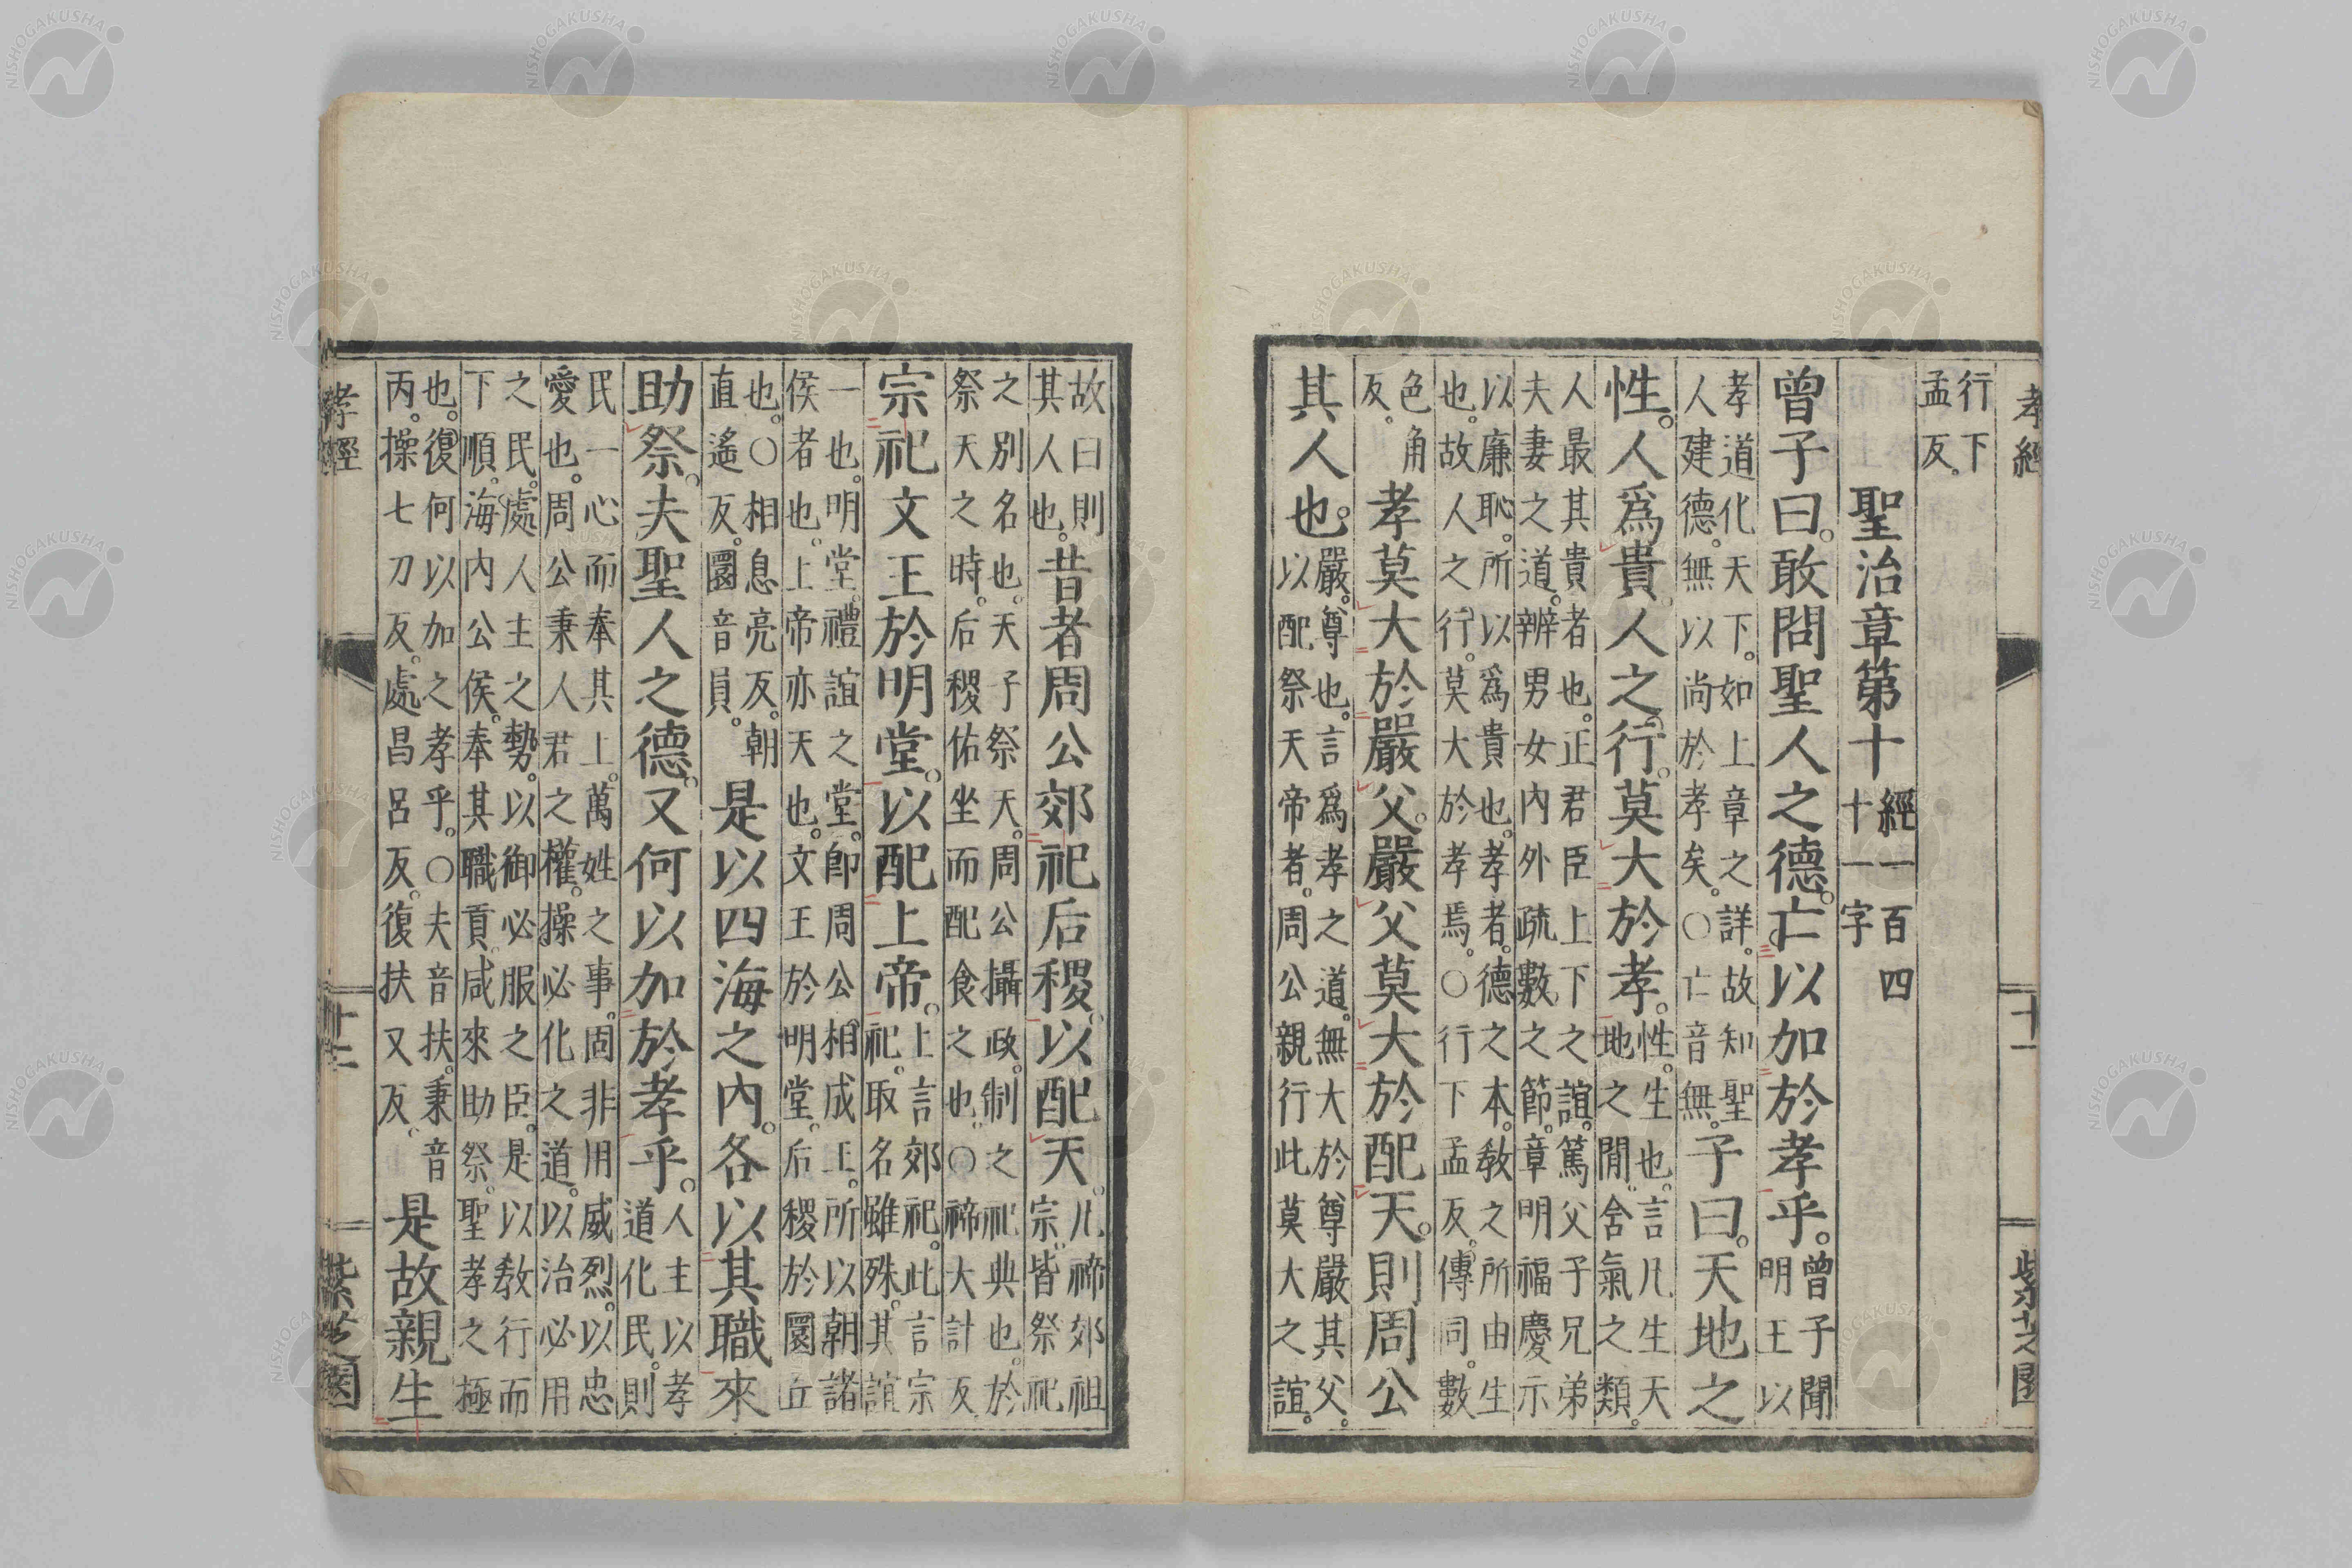 孝經 十一 紫芝園
行下孟反。
聖治章第十 經一百四十一字
曾子曰。敢問聖人之德。亡以加於孝乎。曾子聞明王以
孝道化天下。如上章之詳。故知聖人建德。無以尚於孝矣。○亡音無。子曰。天地之
性。人爲貴。人之行。莫大於孝。性。生也。言凡生天地之閒。含氣之類。
人最其貴者也。正君臣上下之誼。篤父子兄弟夫妻之道。辨男女內外疏數之節。章明福慶示
以廉恥。所以爲貴也。孝者。德之本。敎之所由生也。故人之行。莫大於孝焉。○行下孟反。傳同。數
色角反。孝莫大於嚴父。嚴父莫大於配天。則周公
其人也。嚴。尊也。言爲孝之道。無大於尊嚴其父。以配祭天帝者。周公親行此莫大之誼。
故曰則其人也。昔者周公郊祀后稷。以配天。凡禘郊祖宗。皆祭祀
之別名也。天子祭天。周公攝政。制之祀典也。於祭天之時。后稷佑坐而配食之也。○禘大計反
宗祀文王於明堂。以配上帝。上言郊祀。此言宗祀。取名雖殊。其誼
一也。明堂。禮誼之堂。卽周公。相成王。所以朝諸侯者也。上帝亦天也。文王於明堂。后稷於圜丘
也。○相息亮反。朝直遙反。圜音員。是以四海之內。各以其職來
助祭。夫聖人之德。又何以加於孝乎。人主以孝道化民。則
民一心而奉其上。萬姓之事。固非用威烈。以忠愛也。周公秉人君之權。操必化之道。以治必用
之民。處人主之勢。以御必服之臣。是以敎行而下順。海內公侯。奉其職貢。咸來助祭。聖孝之極
也。復何以加之孝乎。○夫音扶。秉音丙。操七刀反。處昌呂反。復扶又反。是故親生
孝經 十二 紫芝園